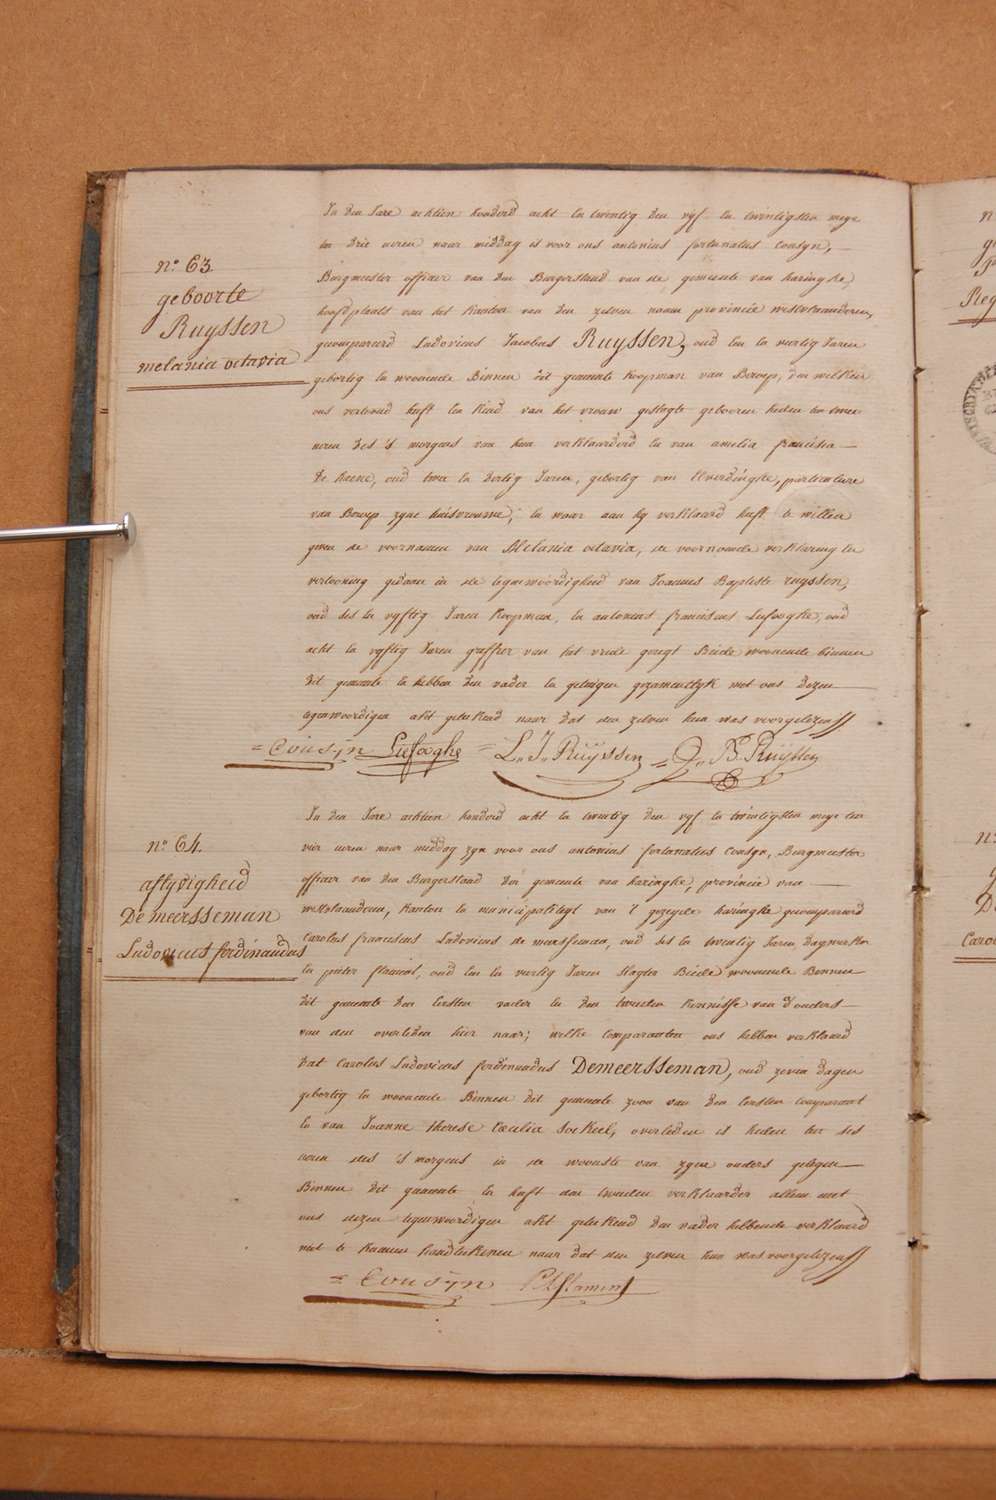 n.° 63.
geboorte
Ruyssen
melania octavia
In den Jare achtien honderd acht en twintig den vyf en twintigsten meye
ten drie ueren naer middag is voor ons antonius fortunatus Cousyn,
Burgmeester officier van den Burgerstand van de gemeente van haringhe,
hoofdplaets van het kanton van den zelven naem provincie westvlaanderen,
gecompareerd Ludovicus Jacobus Ruyssen, oud een en veertig Jaren
geboortig en woonende Binnen dit gemeente koopman van Beroep, den welken
ons vertoond heeft een kind van het vrouw geslagte geboren heden ten twee
ueren des 's morgens van hem verklaarderd en van amelia francisca
De haene, oud twee en dertig Jaren, geboortig van Elverdinghe, particuliere
van Beroep zyne huisvrouwe, en waer aen hy verklaard heeft te willen
geven de voornamen van Melania octavia, de voornoemde verklaring en
vertooning gedaan in de tegenwoordigheid van Joannes Baptiste ruyssen,
oud ses en vyftig Jaren koopman, en antonius franciscus Liefooghe, oud
acht en vyftig Jaren greffier van het vrede geregt Beide woonende binnen
dit gemeente en hebben den vader en getuigen gezamentlyk met ons dezen
tegenwoordigen akt geteekend naer dat den zelven hun was voorgelezen //
= Cousÿn Liefooghe = L. J. Ruÿssen = J. B. Ruÿssen
n.° 64.
aflyvigheid
Demeersseman
Ludovicus ferdinandus
In den Jare achtien honderd acht en twintig den vyf en twintigsten meye ten
vier ueren naer middag zyn voor ons antonius fortunatus Cousyn, Burgmeester
officier van den Burgerstand der gemeente van haringhe, provincie van
westvlaanderen, kanton en municipaliteyt van 't gezegde haringhe gecompareerd
Carolus franciscus Ludovicus de meersseman, oud ses en twintig Jaren dagwerker
en pieter flamint, oud een en veertig Jaren Slagter Beide woonende Binnen
dit gemeente den eersten vader en den tweeden kennisse van d'ouders
van den overleden hier naer; welke comparanten ons hebben verklaard
dat Carolus Ludovicus ferdinandus Demeersseman, oud zeven dagen
geboortig en woonende Binnen dit gemeente zoon van den eersten comparant
en van Joanne therese Cecilia Sockeel, overleden is heden ten ses
ueren des 's morgens in de wooniste van zyne ouders gelegen
Binnen dit gemeente en heeft den tweeden verklaarder alleen met
ons dezen tegenwoordigen akt geteekend den vader hebbende verklaard
niet te konnen handteekenen naer dat den zelven hun was voorgelezen //
= Cousÿn P. Flamint